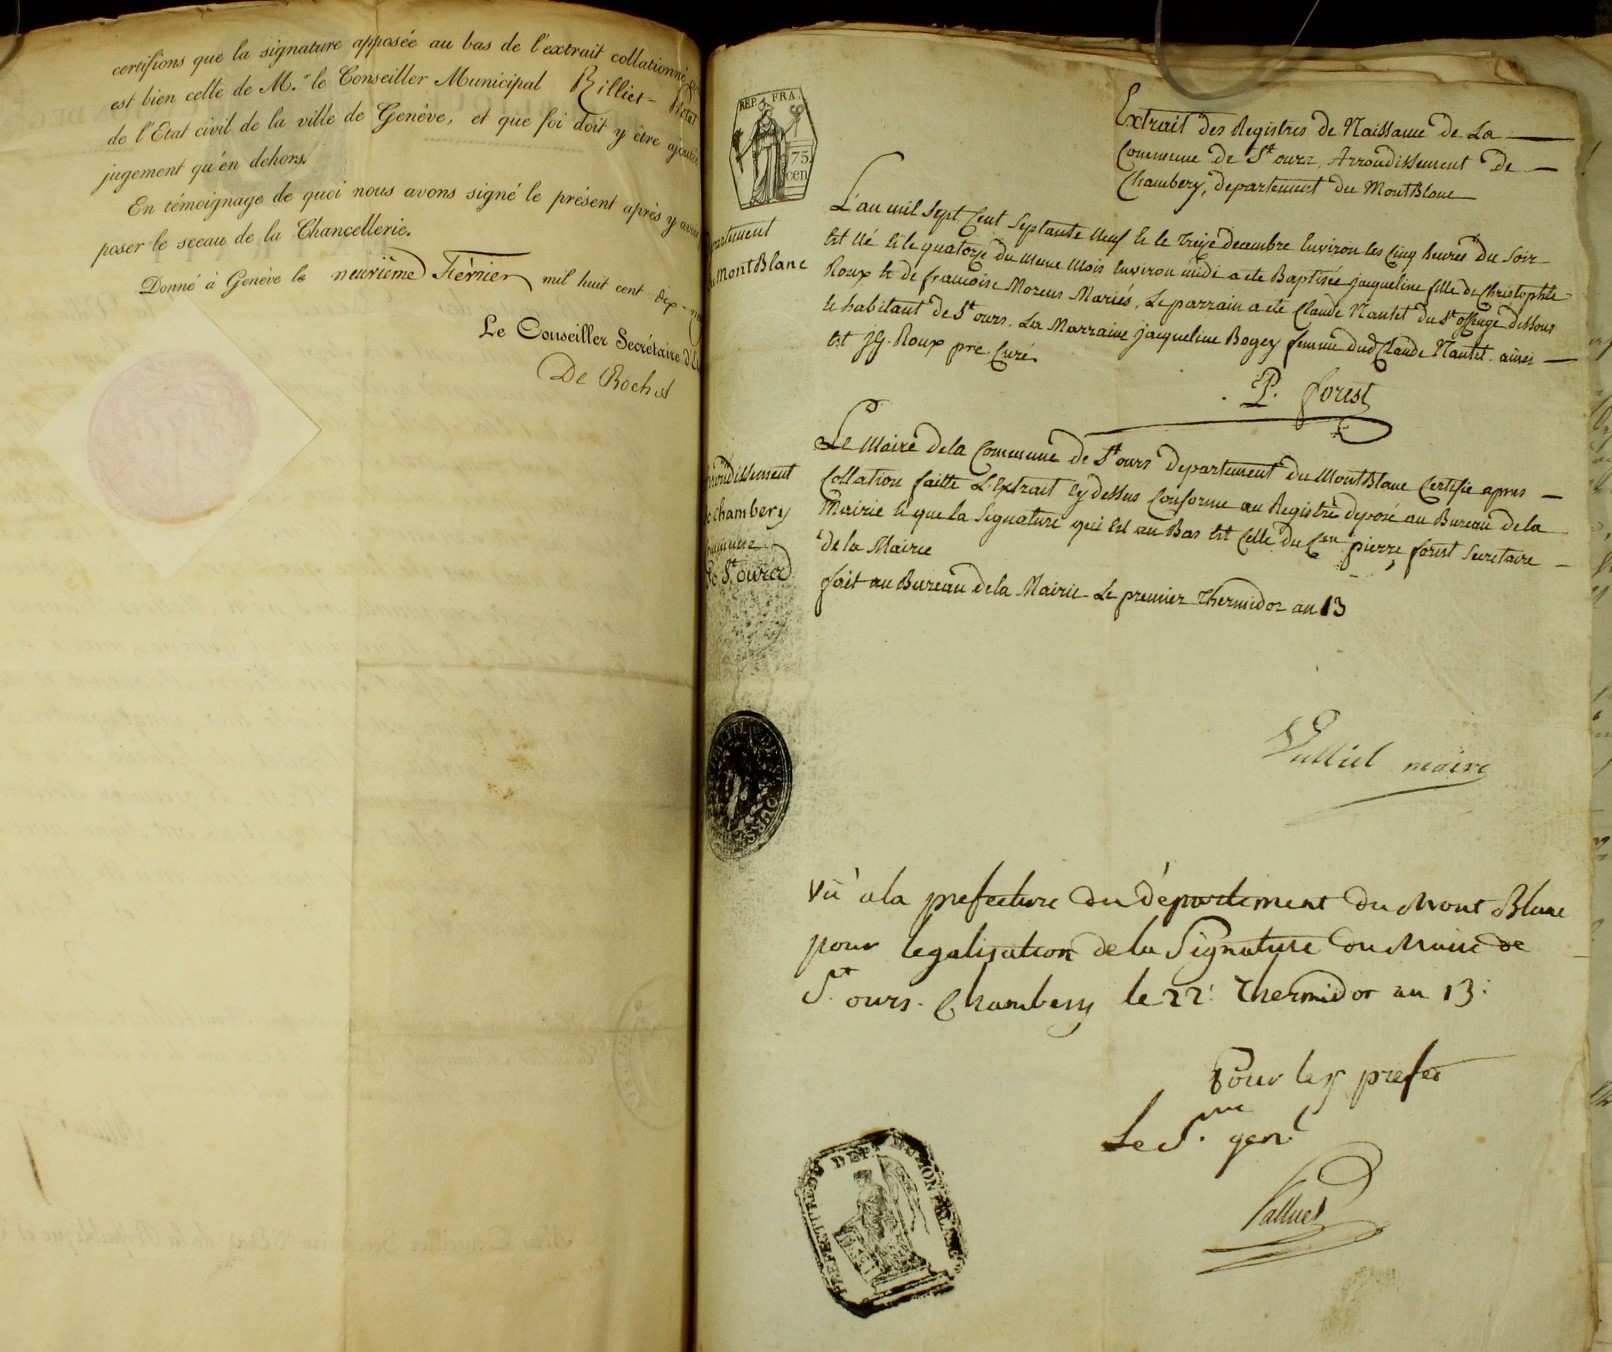 certifions que la signature apposée au bas de l'extrait collationné
est bien celle de M.r le Conseiller Municipal Rilliet-
de l'Etat civil de la ville de Genève, et que foi doit y être ajoutée
jugement qu'en dehors.
En témoignage de quoi nous avons signé le présent après y avoir
poser le sceau de la Chancellerie.
Donné à Genève le neuvième Février mil huit cent dix-
Le Conseiller Secrétaire d'
De Roches
REP. FRA.
75
cen
Extrait des Registres de Naissance de La
Commune de St ours, Arrondissement de
Chambery, departement du MontBlanc
partement
du MontBlanc
L'an mil Sept Cent Septante Neuf & le treize decembre Environ les Cinq heures du Soir
Est Né & le quatorze du meme Mois Environ midi a ete Baptisée jacqueline fille de Christophle
Roux & de francoise Morens Mariés, Le parrain a eté Claude Nantet du St offenge dessous
& habitant de St ours. La Marraine jacqueline Bogey femme dud Claude Nantet. ainsi
Est JG. Roux pre. Curé
P. forest
arrondissement
de chambery
commune
de St ours
Le Maire de la Commune de St ours departement du MontBlanc Certifie apres
Collation faitte L'Extrait Cy dessus Conforme au Registre deposé au Bureau de la
Mairie & que la Signature qui Est au Bas Est Celle du Cen pierre forest Secretaire
de la Mairie
fait au Bureau de la Mairie Le premier Thermidor an 13
Vulliet maire
Vû à la prefecture du département du Mont Blanc
pour legalisation de la Signature du Maire de
St ours. Chambery le 22: Thermidor an 13:
Pour le prefet
Le S.re gen.l
Palluel
PREFECTURE DU DEPT DU MONT BLANC